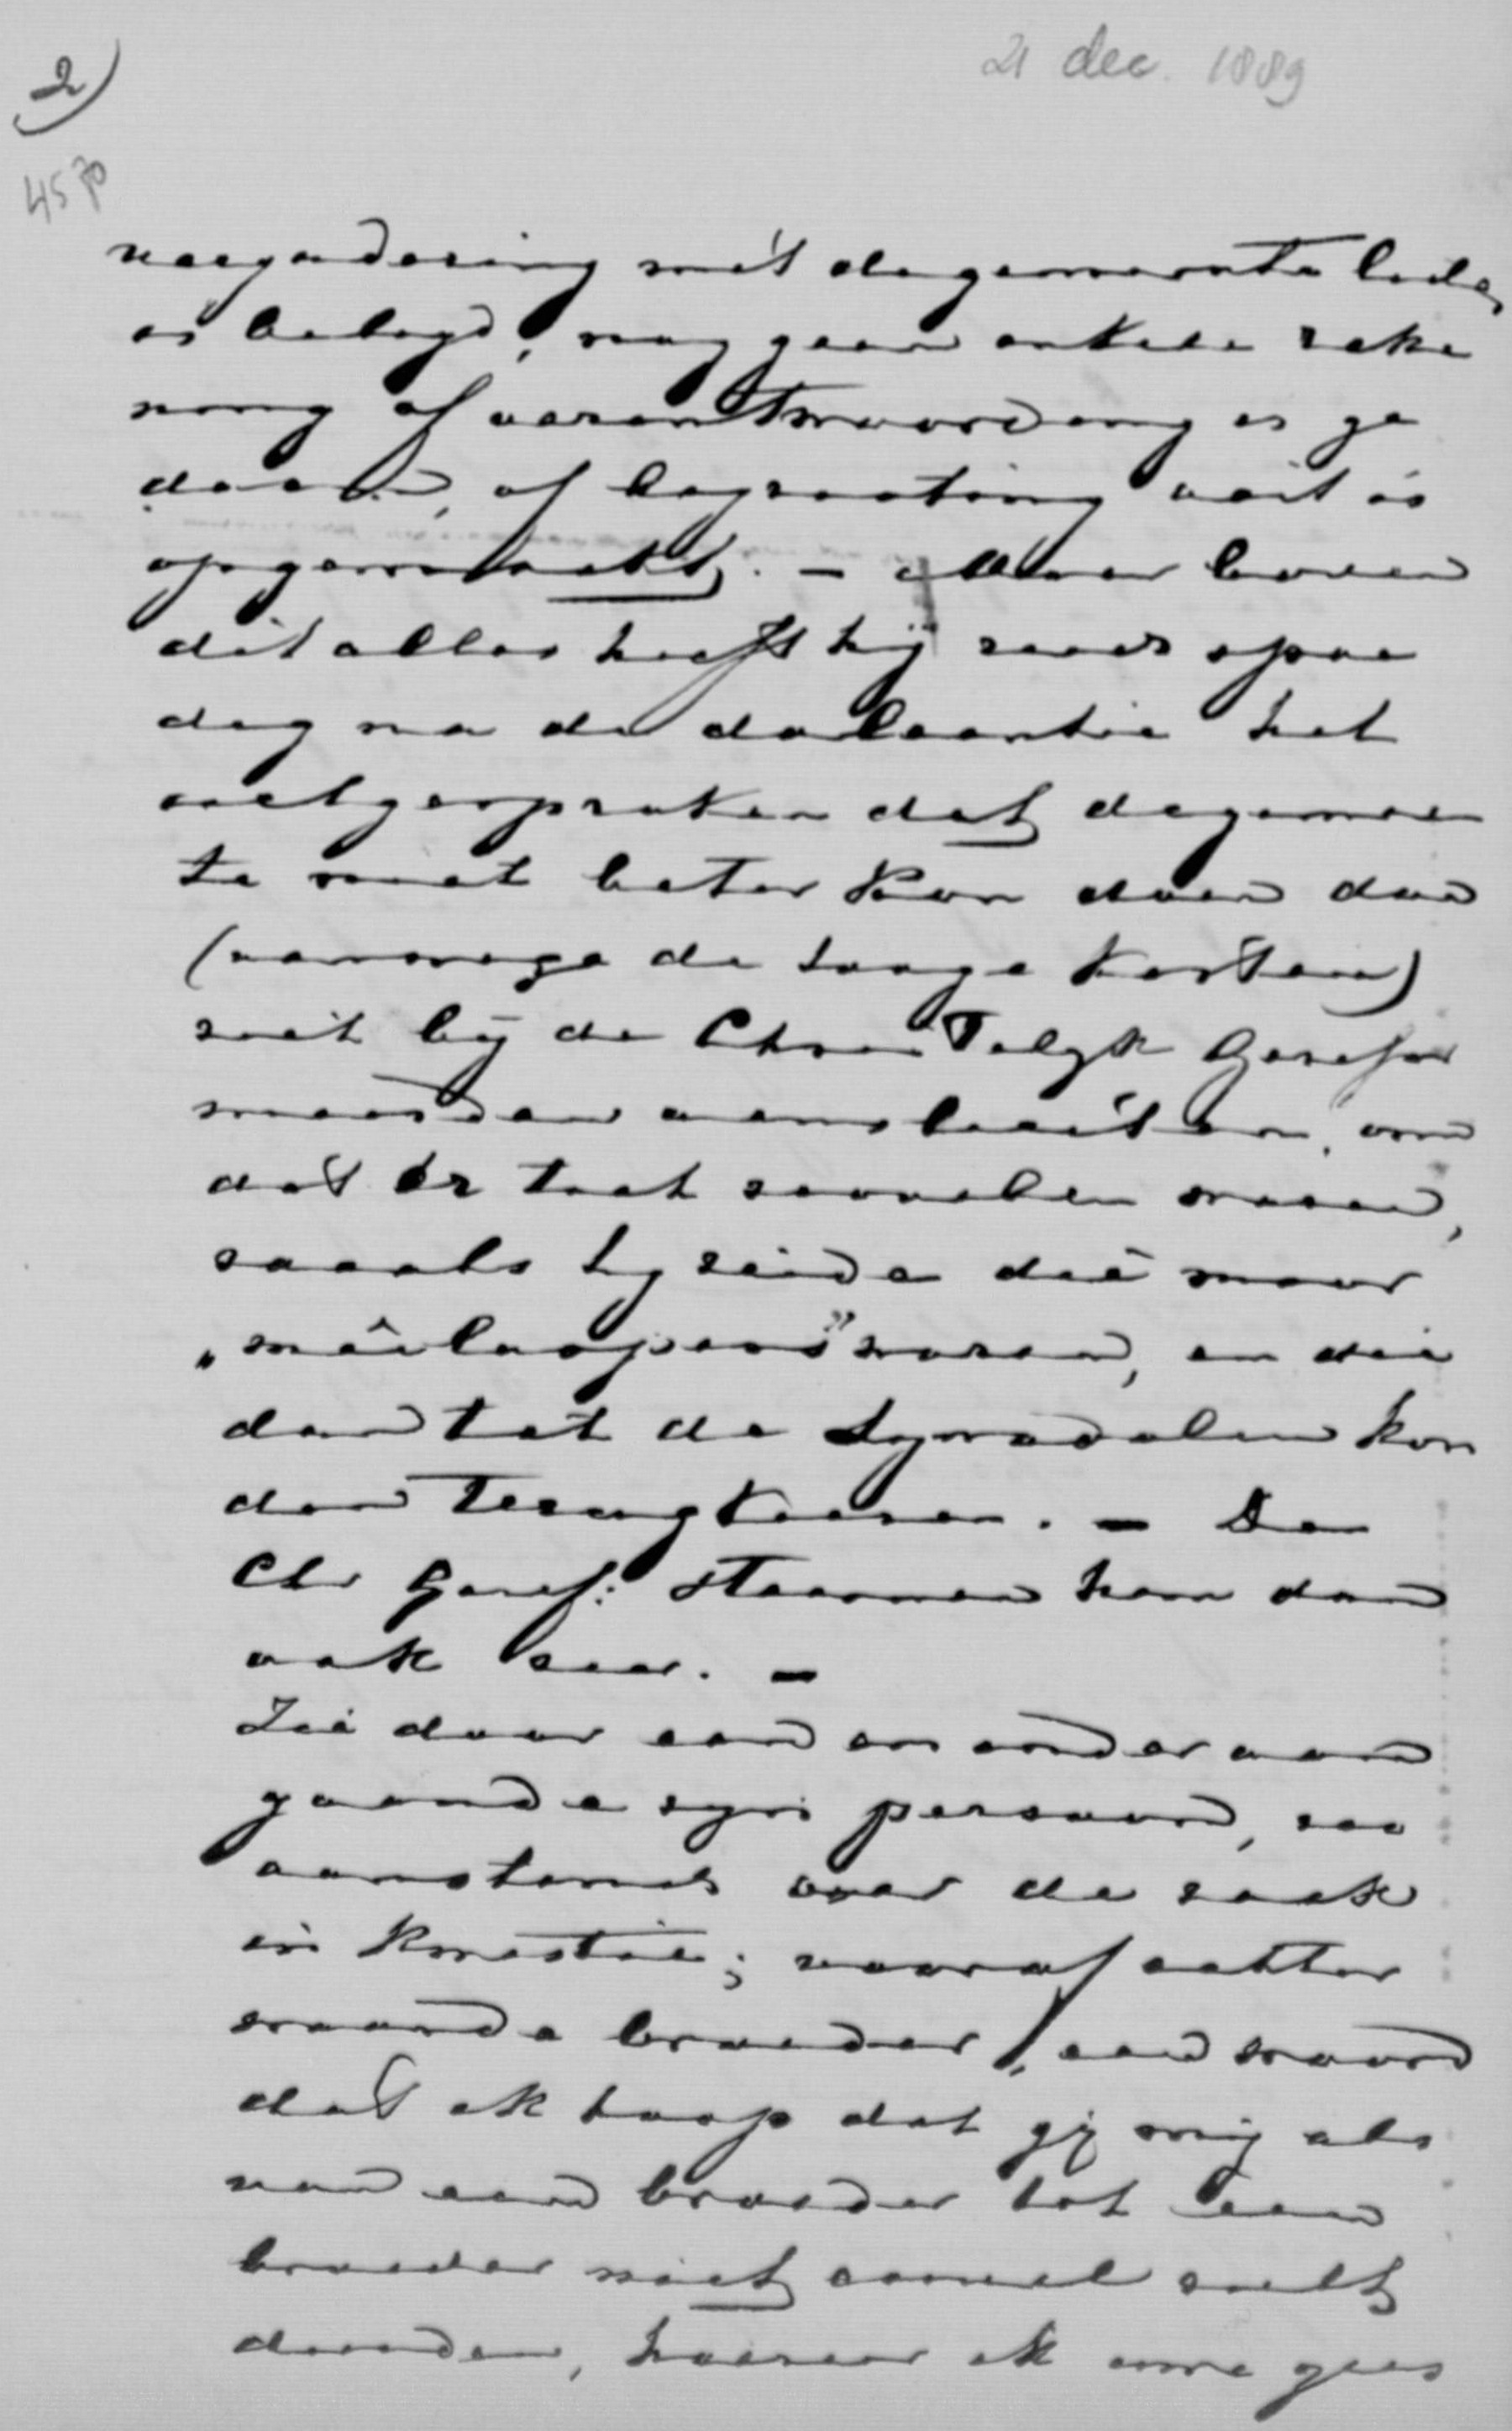 21 dec. 1889
2)
45
vergadering met de gemeente leden
is belegd, nog geen enkele reke
ning of verantwoording is ge
daan, of begrooting ooit is
opgemaakt. — Maar boven
dit alles heeft hij reeds op de
dag na de doleantie het
uitgesproken dat de gemeen
te niet beter kon doen dan
(vanwege de hooge kosten)
zich bij de Christelijk Gerefor
meerden aansluiten, om
dat er toch zoovelen waren,
zooals hij zeide die maar
„meeloopers” waren, en die
dan tot de Synodalen kon
den terugkeeren. — De
Chr Geref: stroomen hem dan
ook
Zie daar een en ander aan
gaande zijn persoon, zoo
aanstonds over de zaak
in kwestie; vooraf echter
waarde broeder, een woord
dat ik hoop dat gij mij als
van een broeder tot een
broeder niet euvel zult
duiden, ik